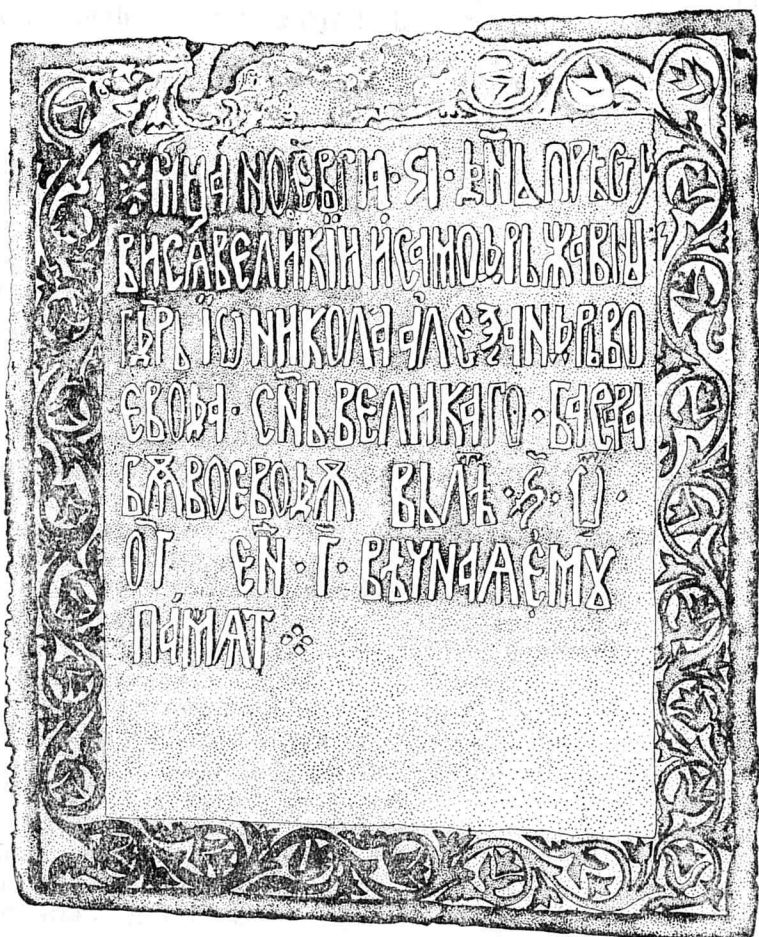 мц҃а ноѐврїа · ѕ҃і · дн҃ь прѣст
ависѧ великїи и самодрьжавїи
г҃дрь Їѡ Никола Алеѯандрь во
евода · сн҃ь великаго · Басара
бѫ воеводѫ вь лѣ · ҂ѕ҃ · ѿ ·
о҃г ен҃ · г҃ · вѣчнаѧ емꙋ
памѧт